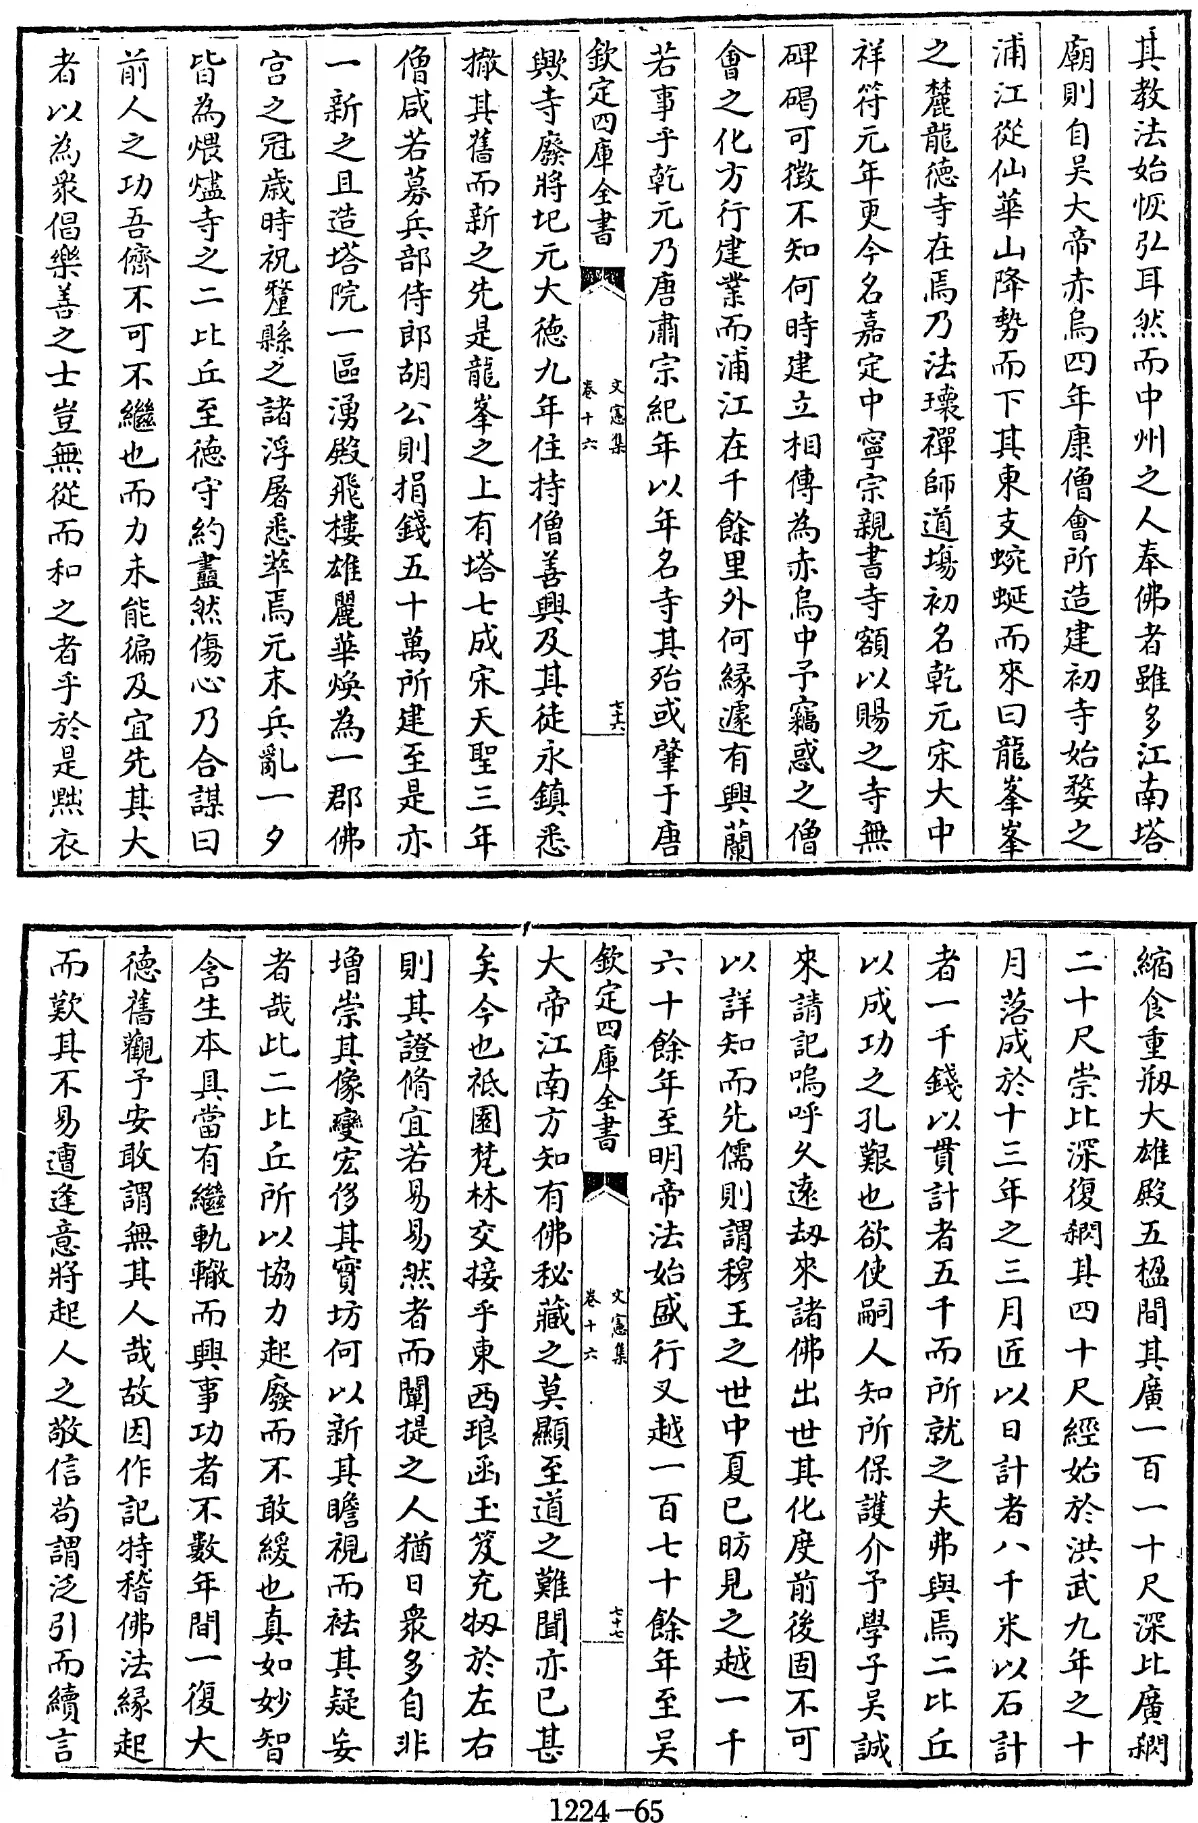 其教法始恢弘耳然而中州之人奉佛者雖多江南塔
廟則自吴大帝赤烏四年康僧會所造建初寺始婺之
浦江從仙華山降勢而下其東支蜿蜒而來曰龍峯峯
之麓龍徳寺在焉乃法壊禪師道塲初名乾元宋大中
祥符元年更今名嘉定中寧宗親書寺額以賜之寺無
碑碣可徴不知何時建立相傳為赤烏中予竊惑之僧
㑹之化方行建業而浦江在千餘里外何縁遽有興蘭
若事乎乾元乃唐肅宗紀年以年名寺其殆或肇于唐
欽定四庫全書
文憲集
卷十六
七十六
歟寺廢將圯元大徳九年住持僧善興及其徒永鎮悉
撤其舊而新之先是龍峯之上有塔七成宋天聖三年
僧咸若募兵部侍郎胡公則捐錢五十萬所建至是亦
一新之且造塔院一區湧殿飛樓雄麗華焕為一郡佛
宫之冠歳時祝釐縣之諸浮屠悉萃焉元末兵亂一夕
皆為煨燼寺之二比丘至徳守約盡然傷心乃合謀曰
前人之功吾儕不可不繼也而力未能徧及宜先其大
者以為衆倡樂善之士豈無從而和之者乎於是㸃衣
縮食重剏大雄殿五楹間其廣一百一十尺深比廣𣙜
二十尺崇比深復𣙜其四十尺經始於洪武九年之十
月落成於十三年之三月匠以日計者八千米以石計
者一千錢以貫計者五千而所就之夫弗與焉二比丘
以成功之孔艱也欲使嗣人知所保護介予學子吴誠
來請記嗚呼乆逺刼來諸佛出世其化度前後固不可
以詳知而先儒則謂穆王之世中夏已昉見之越一千
六十餘年至明帝法始盛行又越一百七十餘年至吴
欽定四庫全書
文憲集
卷十六
七十七
大帝江南方知有佛秘藏之莫顯至道之難聞亦已甚
矣今也祗園梵林交接乎東西琅函玉笈充牣於左右
則其證脩宜若易易然者而闡提之人猶日衆多自非
増崇其像變宏侈其寳坊何以新其瞻視而袪其疑妄
者哉此二比丘所以協力起廢而不敢緩也真如妙智
含生本具當有繼軌轍而興事功者不數年間一復大
徳舊觀予安敢謂無其人哉故因作記特稽佛法縁起
而歎其不易遭逢意將起人之敬信苟謂泛引而續言
1224-65